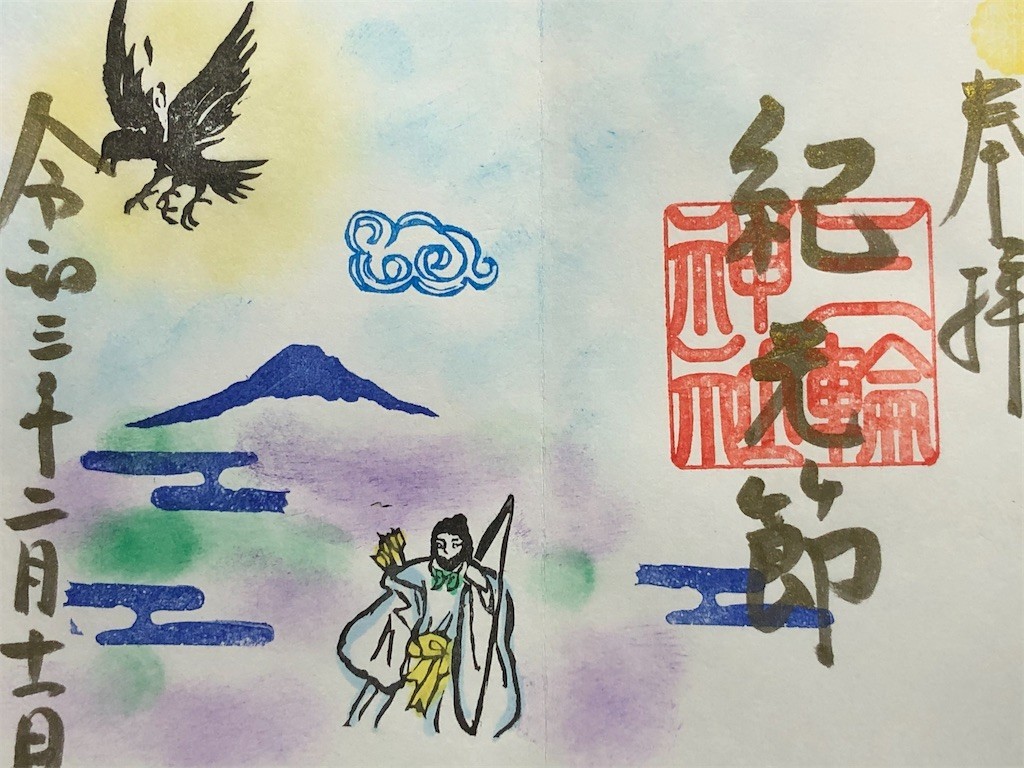 奉拝
紀元節
三輪
神社
令和三年二月十一日